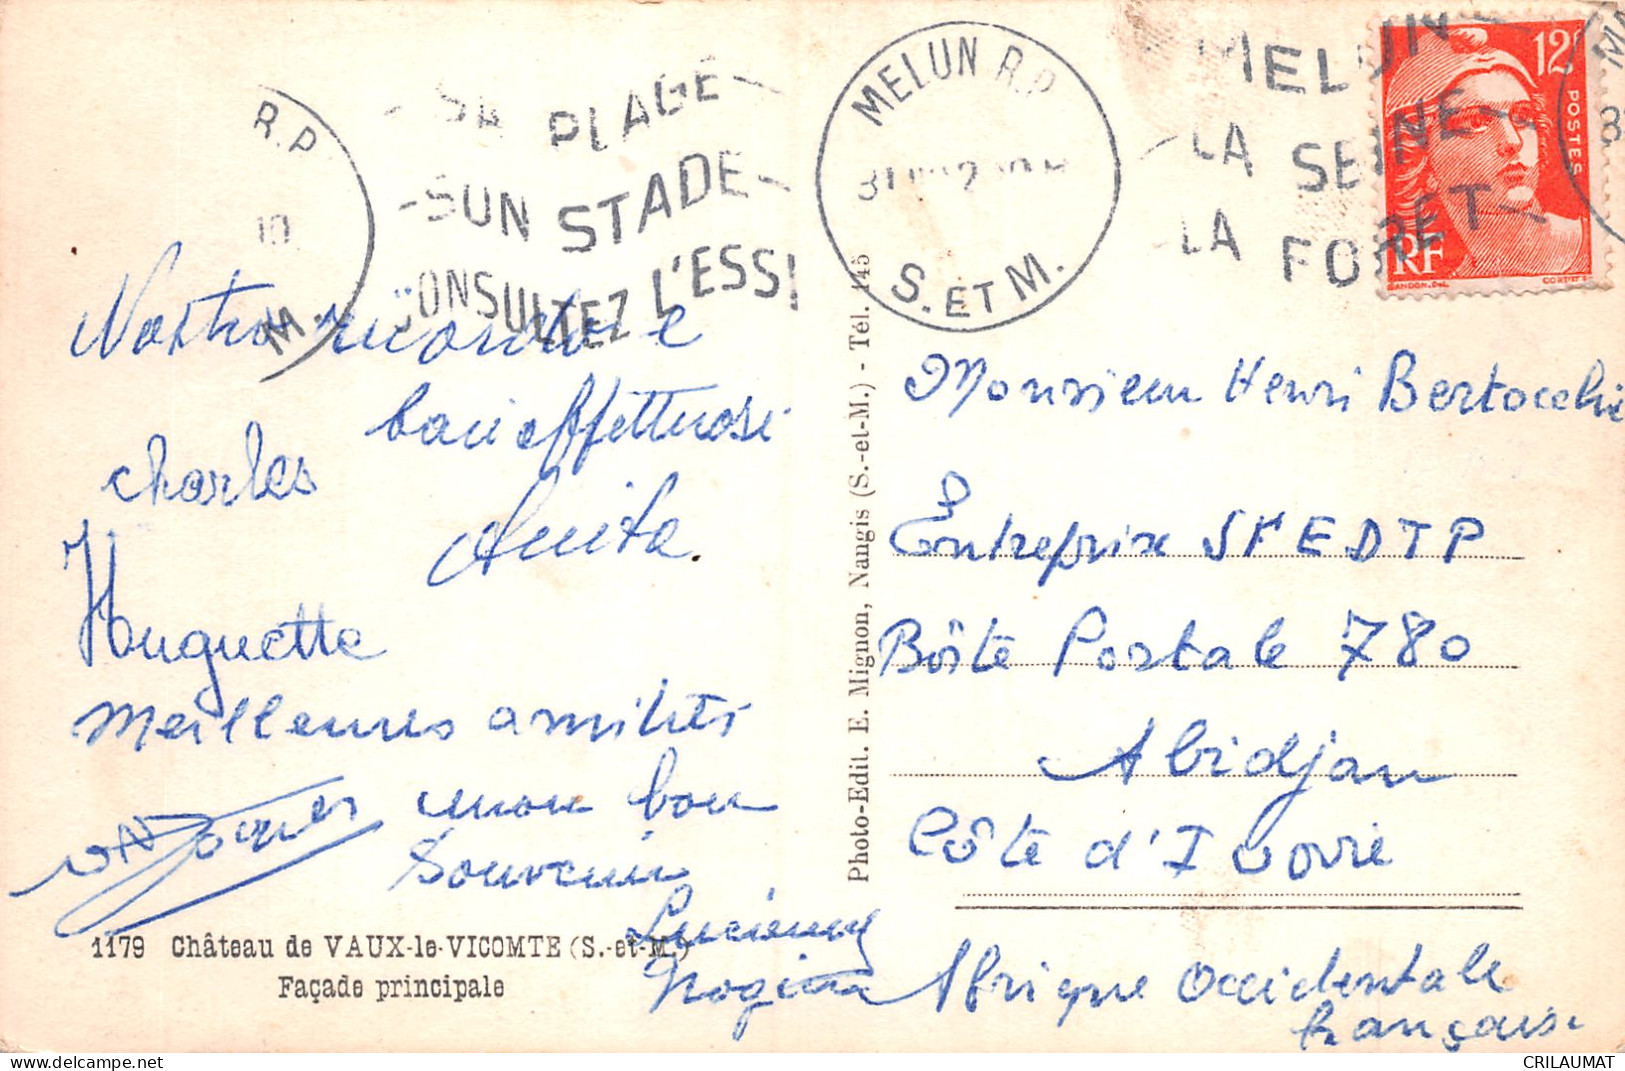 R.P.
10
M.
SA PLAGE
SON STADE
CONSULTEZ L'ESSI
MELUN R.P.
S. ET M.
MELUN
LA SEINE
LA FORET
12F
POSTES
RF
GANDON.Del.
Nostro ricordo e
baci affettuosi
Charles
Anita.
Huguette
Meilleures amitiés
Jacques mon bon
Souvenir
Lucienne
1179 Château de VAUX-le-VICOMTE (S.-et-M.)
Façade principale
Photo-Edit. E. Mignon, Nangis (S.-et-M.) - Tél. 145
Monsieur Henri Bertocchi
Entreprise SFEDTP
Boîte Postale 780
Abidjan
Côte d'Ivoire
Afrique Occidentale
française
CRILAUMAT